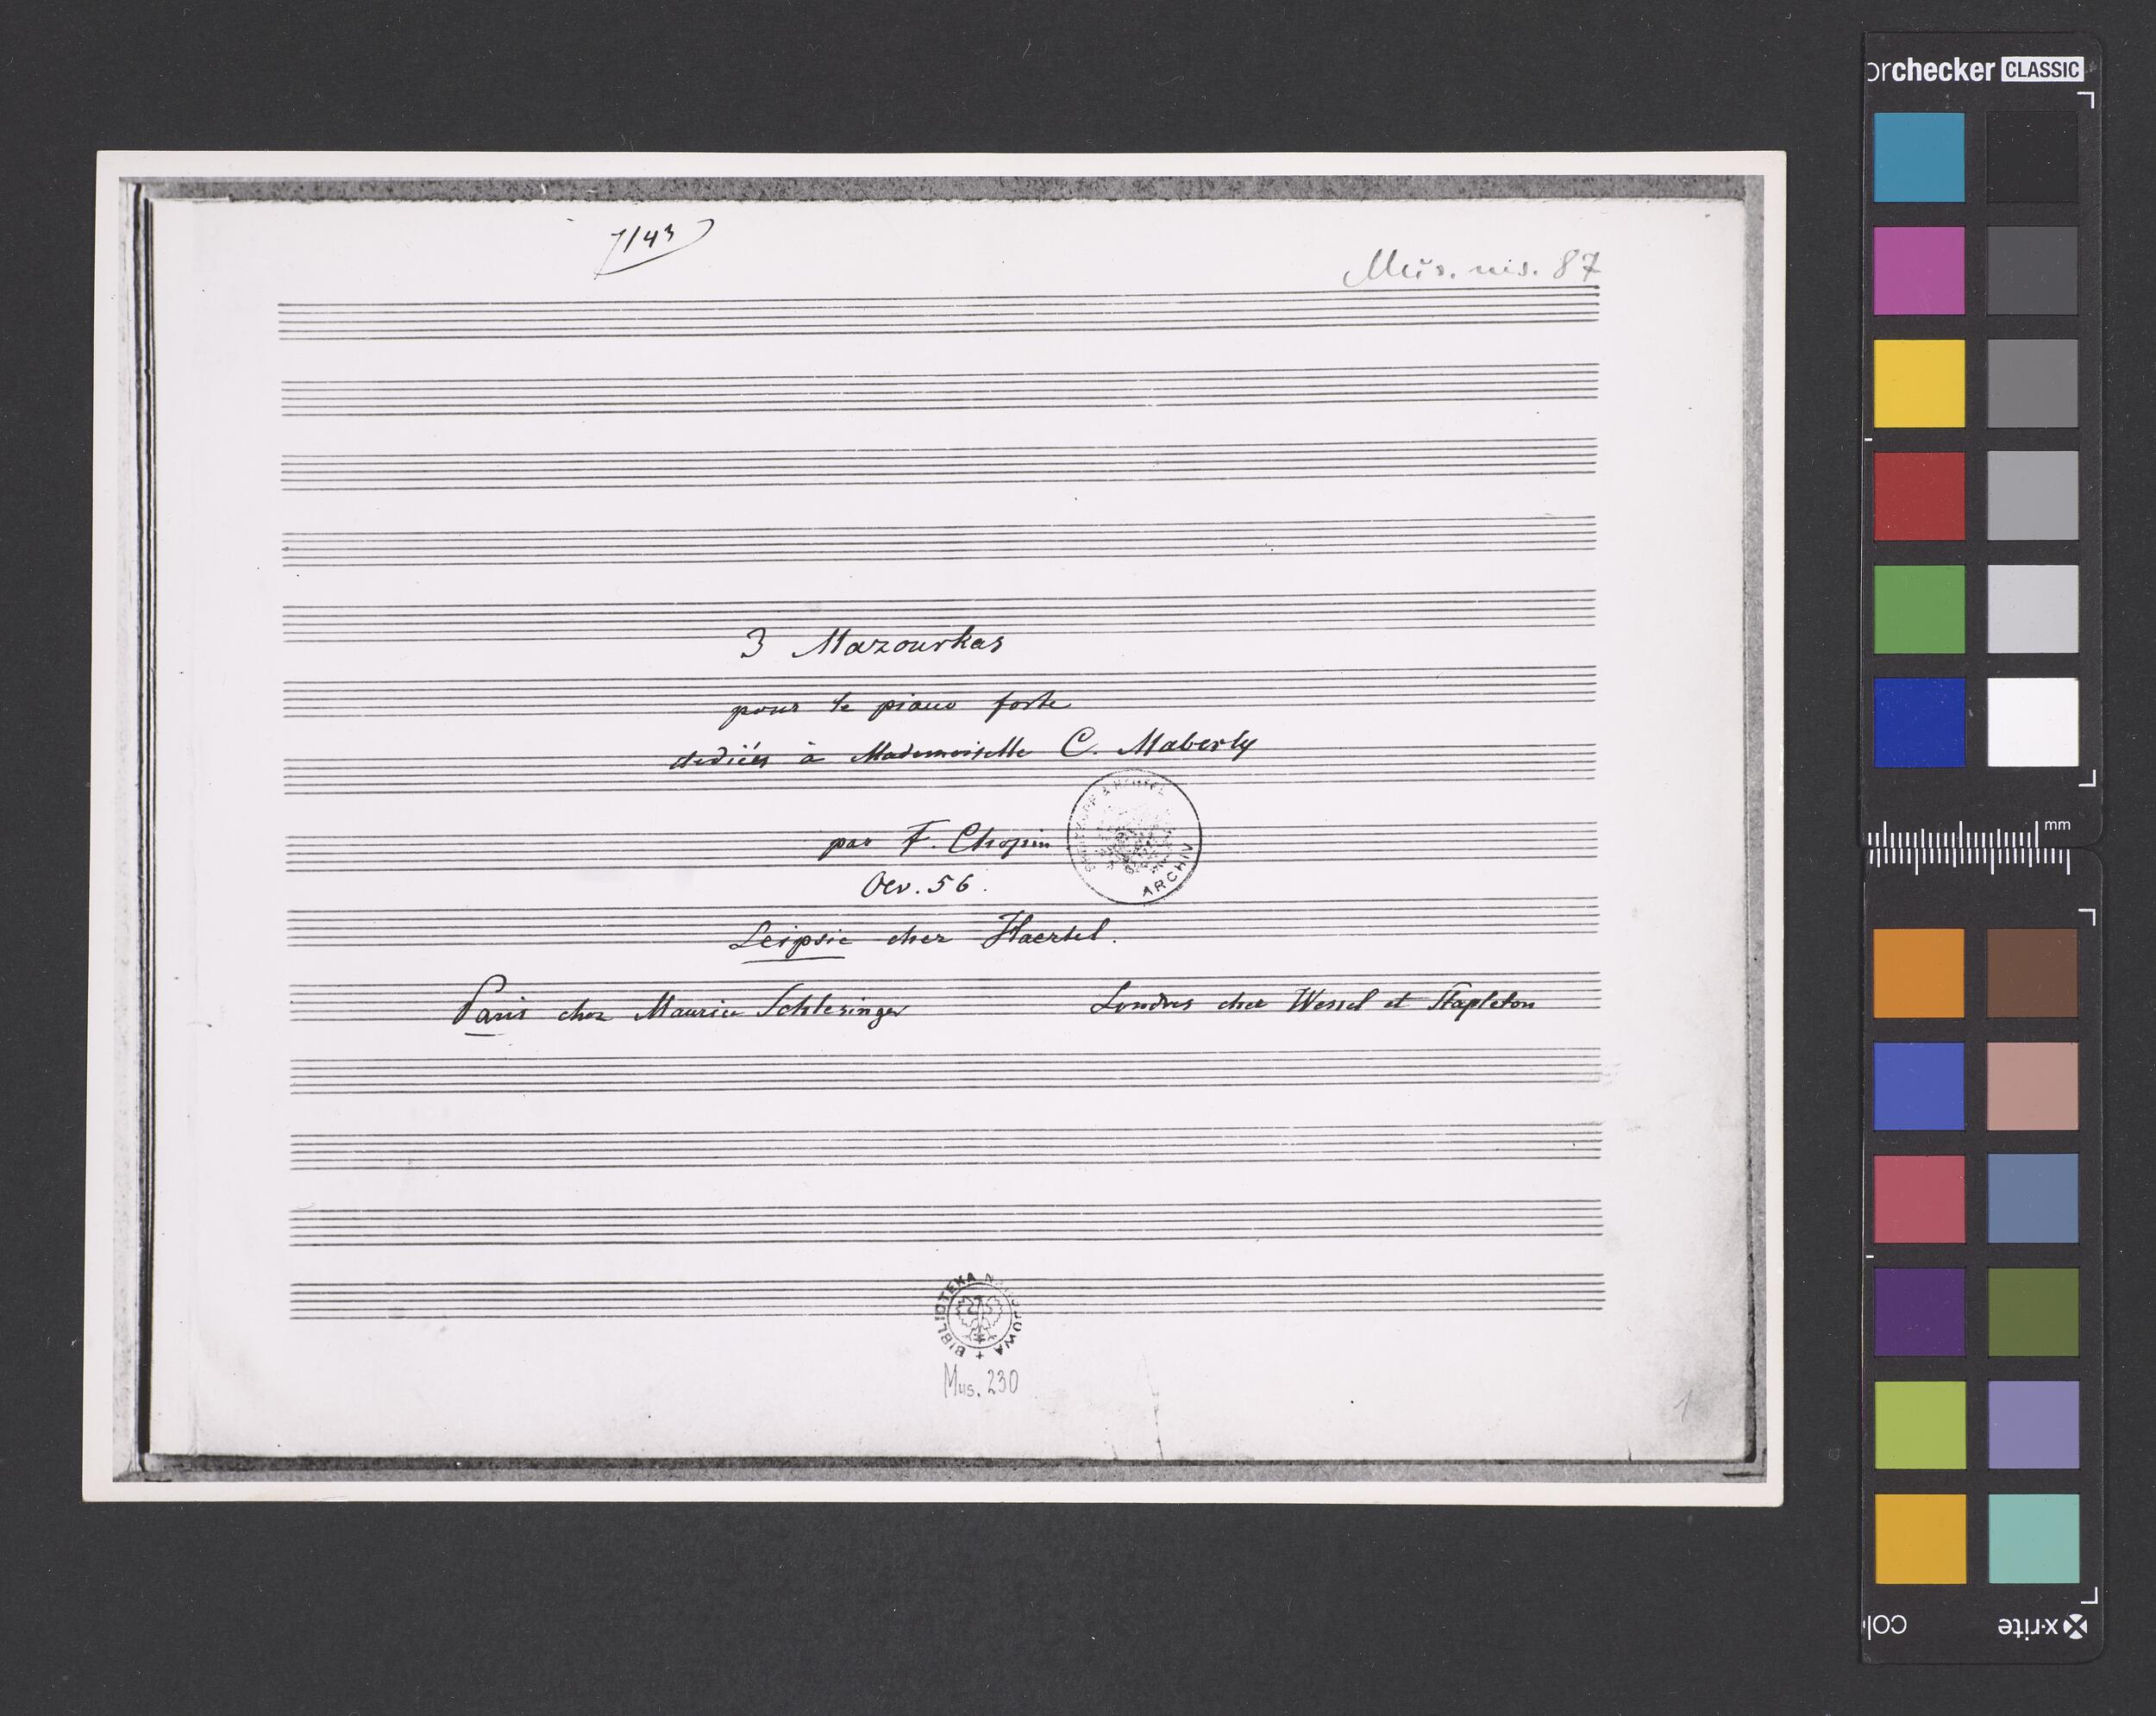 7143
Mus. ms. 87
3 Mazourkas
pour le piano forte
dediées à Mademoiselle C. Maberly
par F. Chopin
Oev. 56.
Leipsic chez Haertel.
Paris chez Maurice Schlesinger
Londres chez Wessel et Stapleton
ARCHIV
BIBLIOTEKA NARODOWA
Mus. 230
1
orchecker CLASSIC
mm
x-rite
col